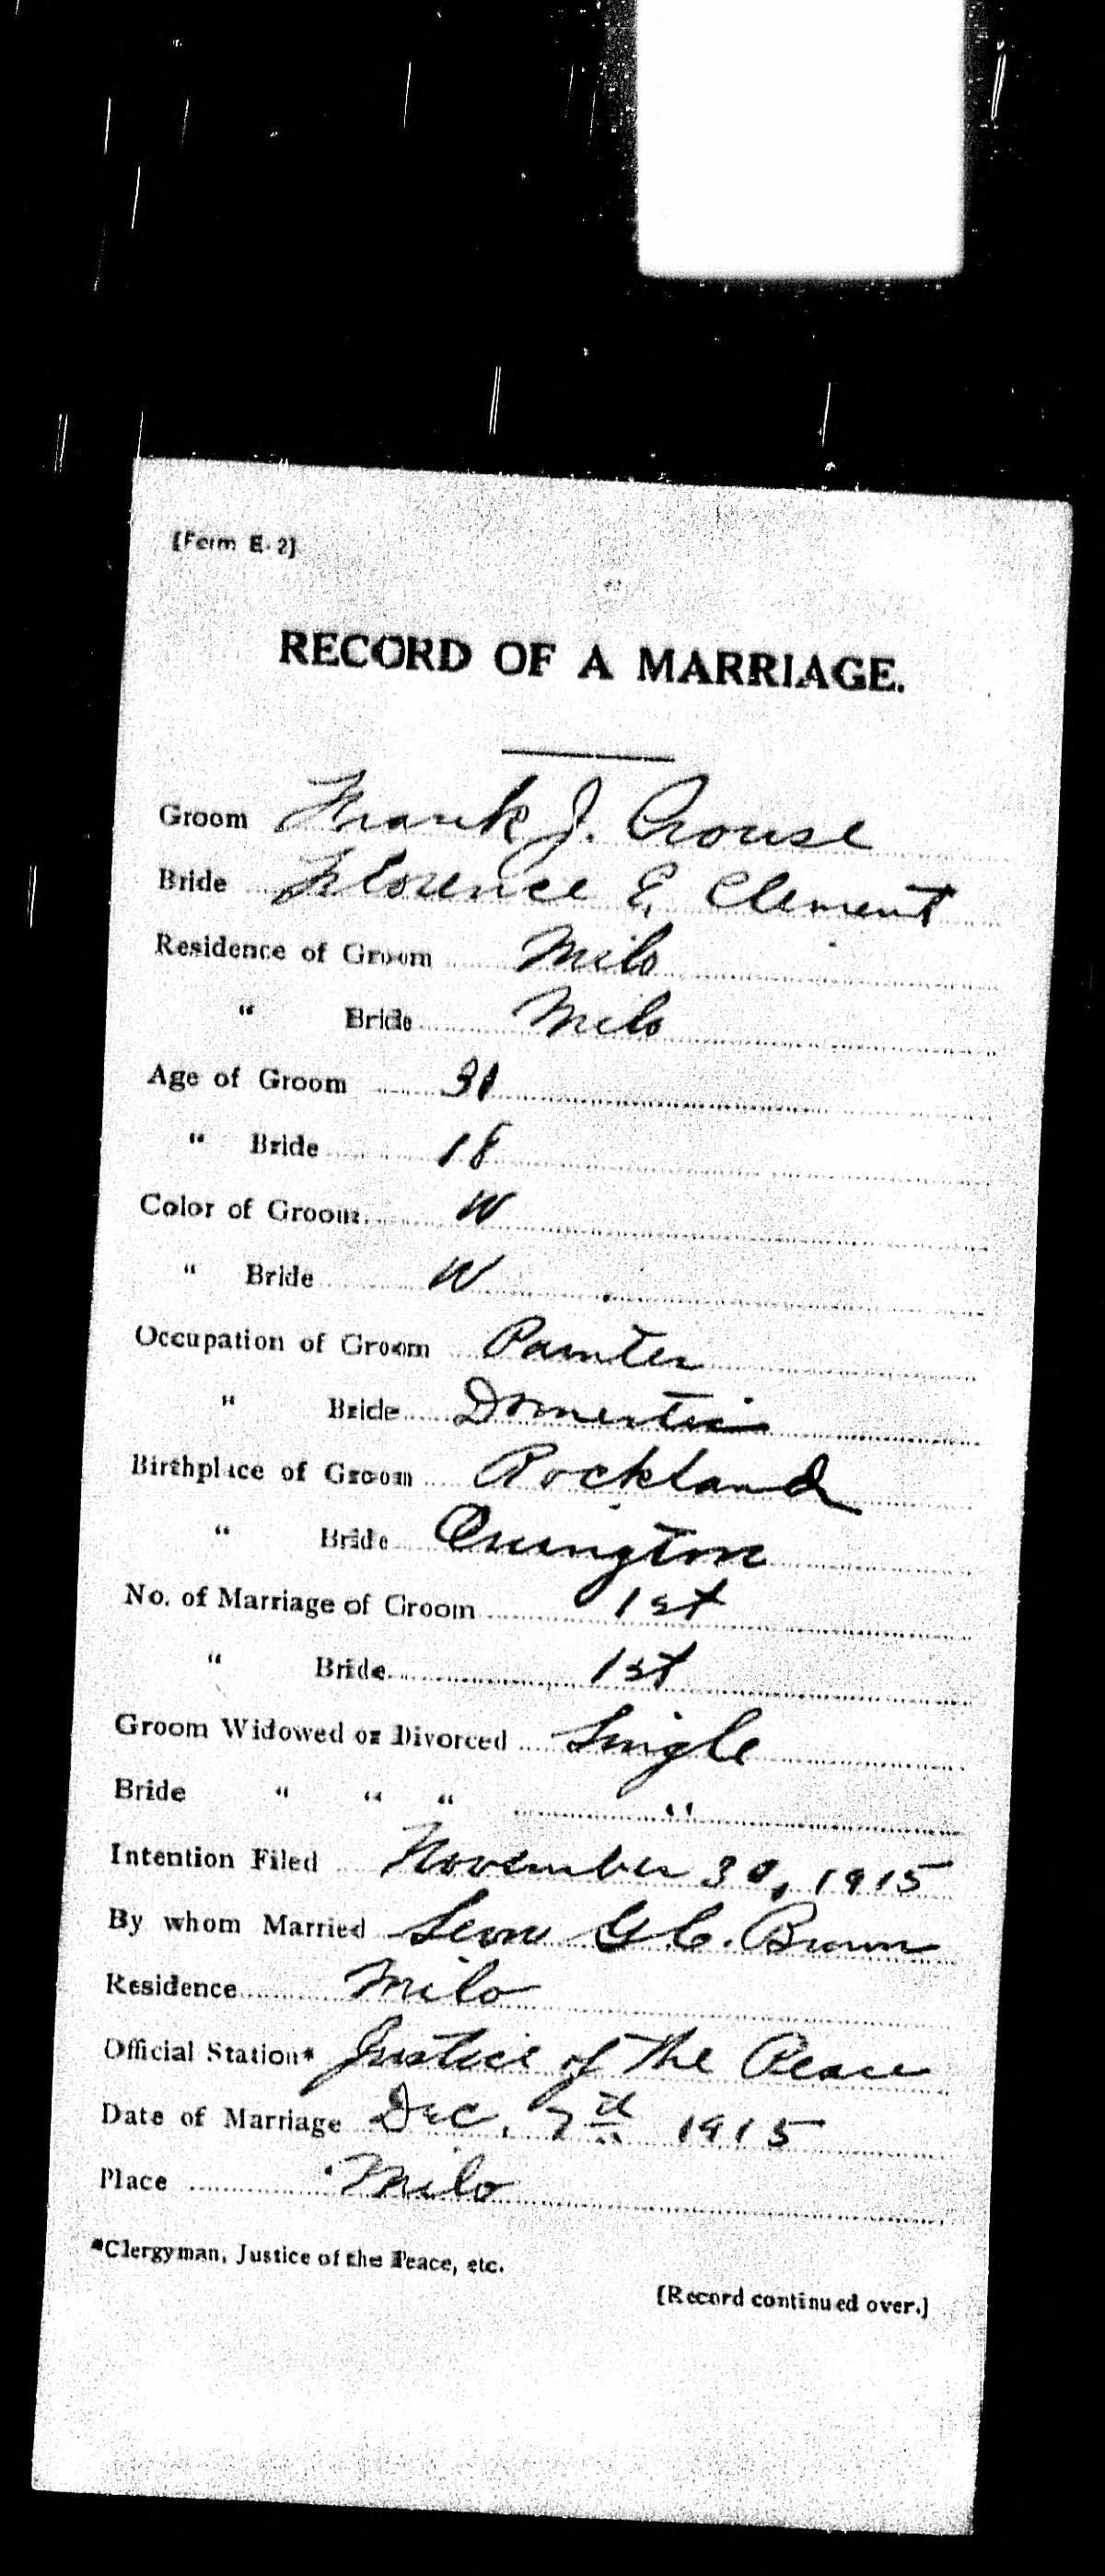 [Form E-2]
RECORD OF A MARRIAGE.
Groom Frank J. Crouse
Bride Florence E. Clement
Residence of Groom Milo
" Bride Milo
Age of Groom 31
" Bride 18
Color of Groom W
" Bride W
Occupation of Groom Painter
" Bride Domestic
Birthplace of Groom Rockland
" Bride Orrington
No. of Marriage of Groom 1st
" Bride 1st
Groom Widowed or Divorced Single
Bride " " " "
Intention Filed November 30, 1915
By whom Married Leon G. C. Brown
Residence Milo
Official Station* Justice of the Peace
Date of Marriage Dec. 7th 1915
Place Milo
*Clergyman, Justice of the Peace, etc.
[Record continued over.]